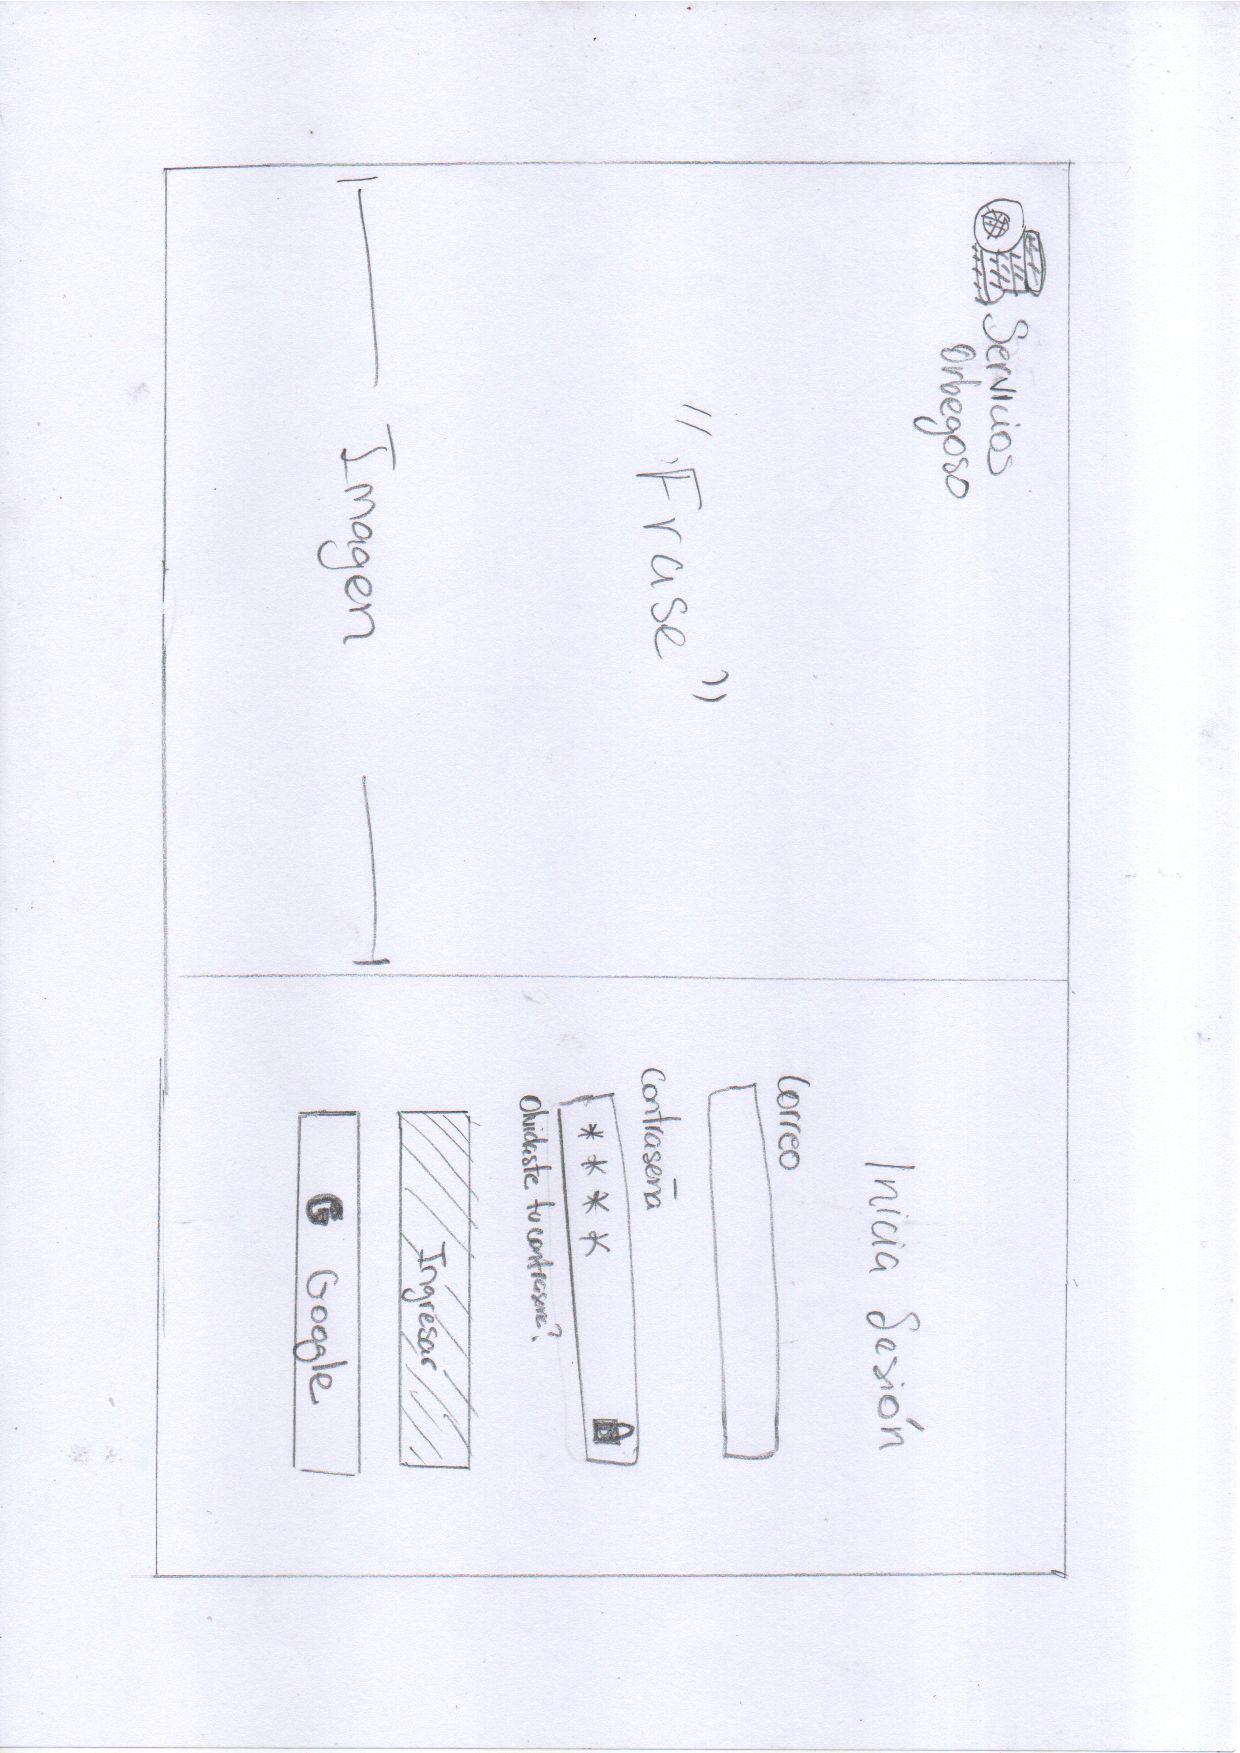 Servicios
Orbegoso
"Frase"
Imagen
Inicia Sesión
Correo
Contraseña
****
Olvidaste tu contraseña?
Ingresar
G Google